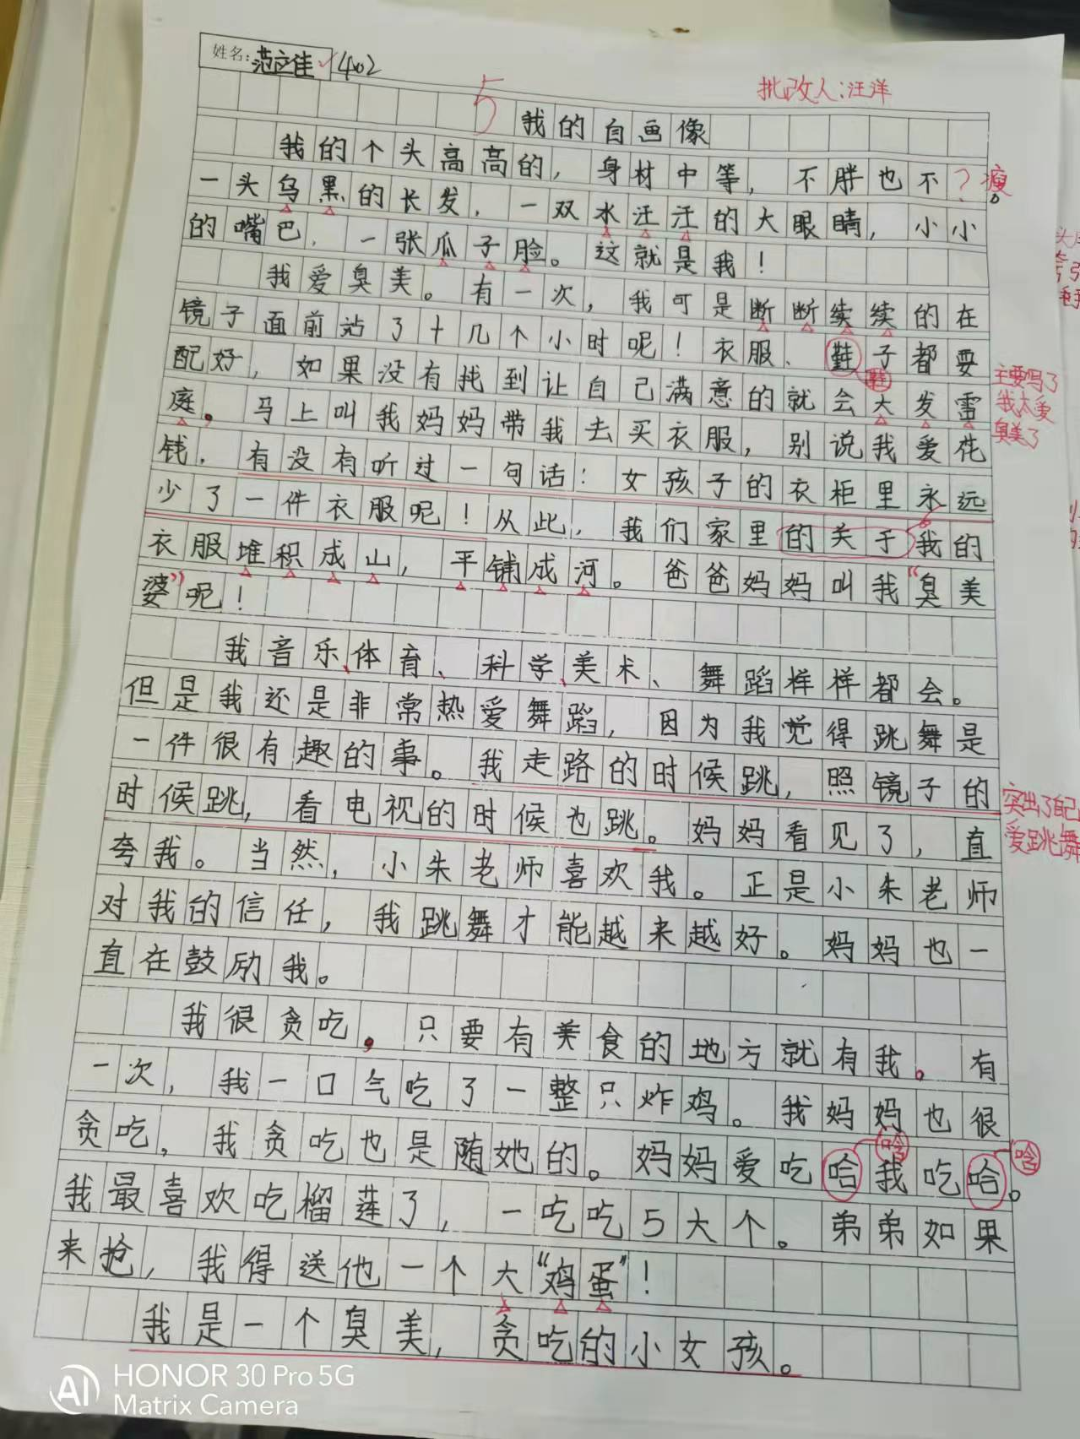 姓名:范文佳 402
批改人:汪洋
5 我的自画像
我的个头高高的,身材中等,不胖也不?瘦。
一头乌黑的长发,一双水汪汪的大眼睛,小小
的嘴巴,一张瓜子脸。这就是我!
我爱臭美。有一次,我可是断断续续的在
镜子面前站了十几个小时呢!衣服、鞋子都要
鞋
配好,如果没有找到让自己满意的就会大发雷
主要写了
我太爱
臭美了
庭,马上叫我妈妈带我去买衣服,别说我爱花
钱,有没有听过一句话:女孩子的衣柜里永远
少了一件衣服呢!从此,我们家里的关于我的
衣服堆积成山,平铺成河。爸爸妈妈叫我“臭美
婆”呢!
我音乐、体育、科学、美术、舞蹈样样都会。
但是我还是非常热爱舞蹈,因为我觉得跳舞是
一件很有趣的事。我走路的时候跳,照镜子的
时候跳,看电视的时候也跳。妈妈看见了,直
突出了自己
爱跳舞
夸我。当然,小朱老师喜欢我。正是小朱老师
对我的信任,我跳舞才能越来越好。妈妈也一
直在鼓励我。
我很贪吃,只要有美食的地方就有我。有
一次,我一口气吃了一整只炸鸡。我妈妈也很
贪吃,我贪吃也是随她的。妈妈爱吃哈我吃哈。
啥 啥
我最喜欢吃榴莲了,一吃吃5大个。弟弟如果
来抢,我得送他一个大“鸡蛋”!
我是一个臭美,贪吃的小女孩。
HONOR 30 Pro 5G
Matrix Camera